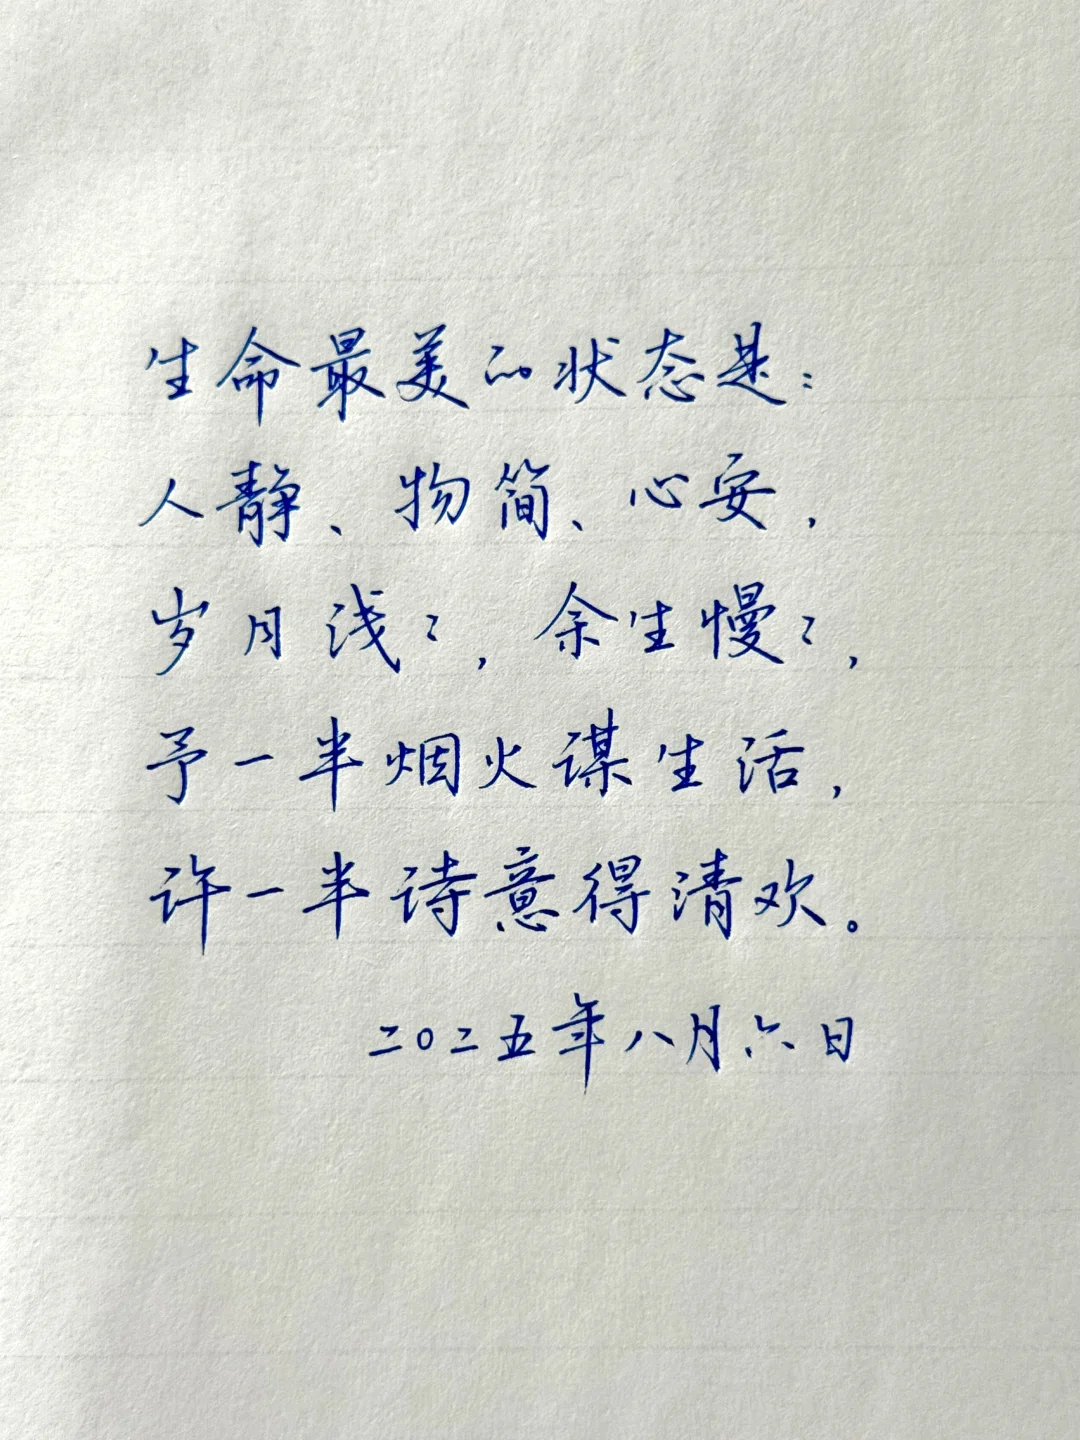 生命最美的状态是：
人静、物简、心安，
岁月浅々，余生慢々，
予一半烟火谋生活，
许一半诗意得清欢。
二〇二五年八月六日